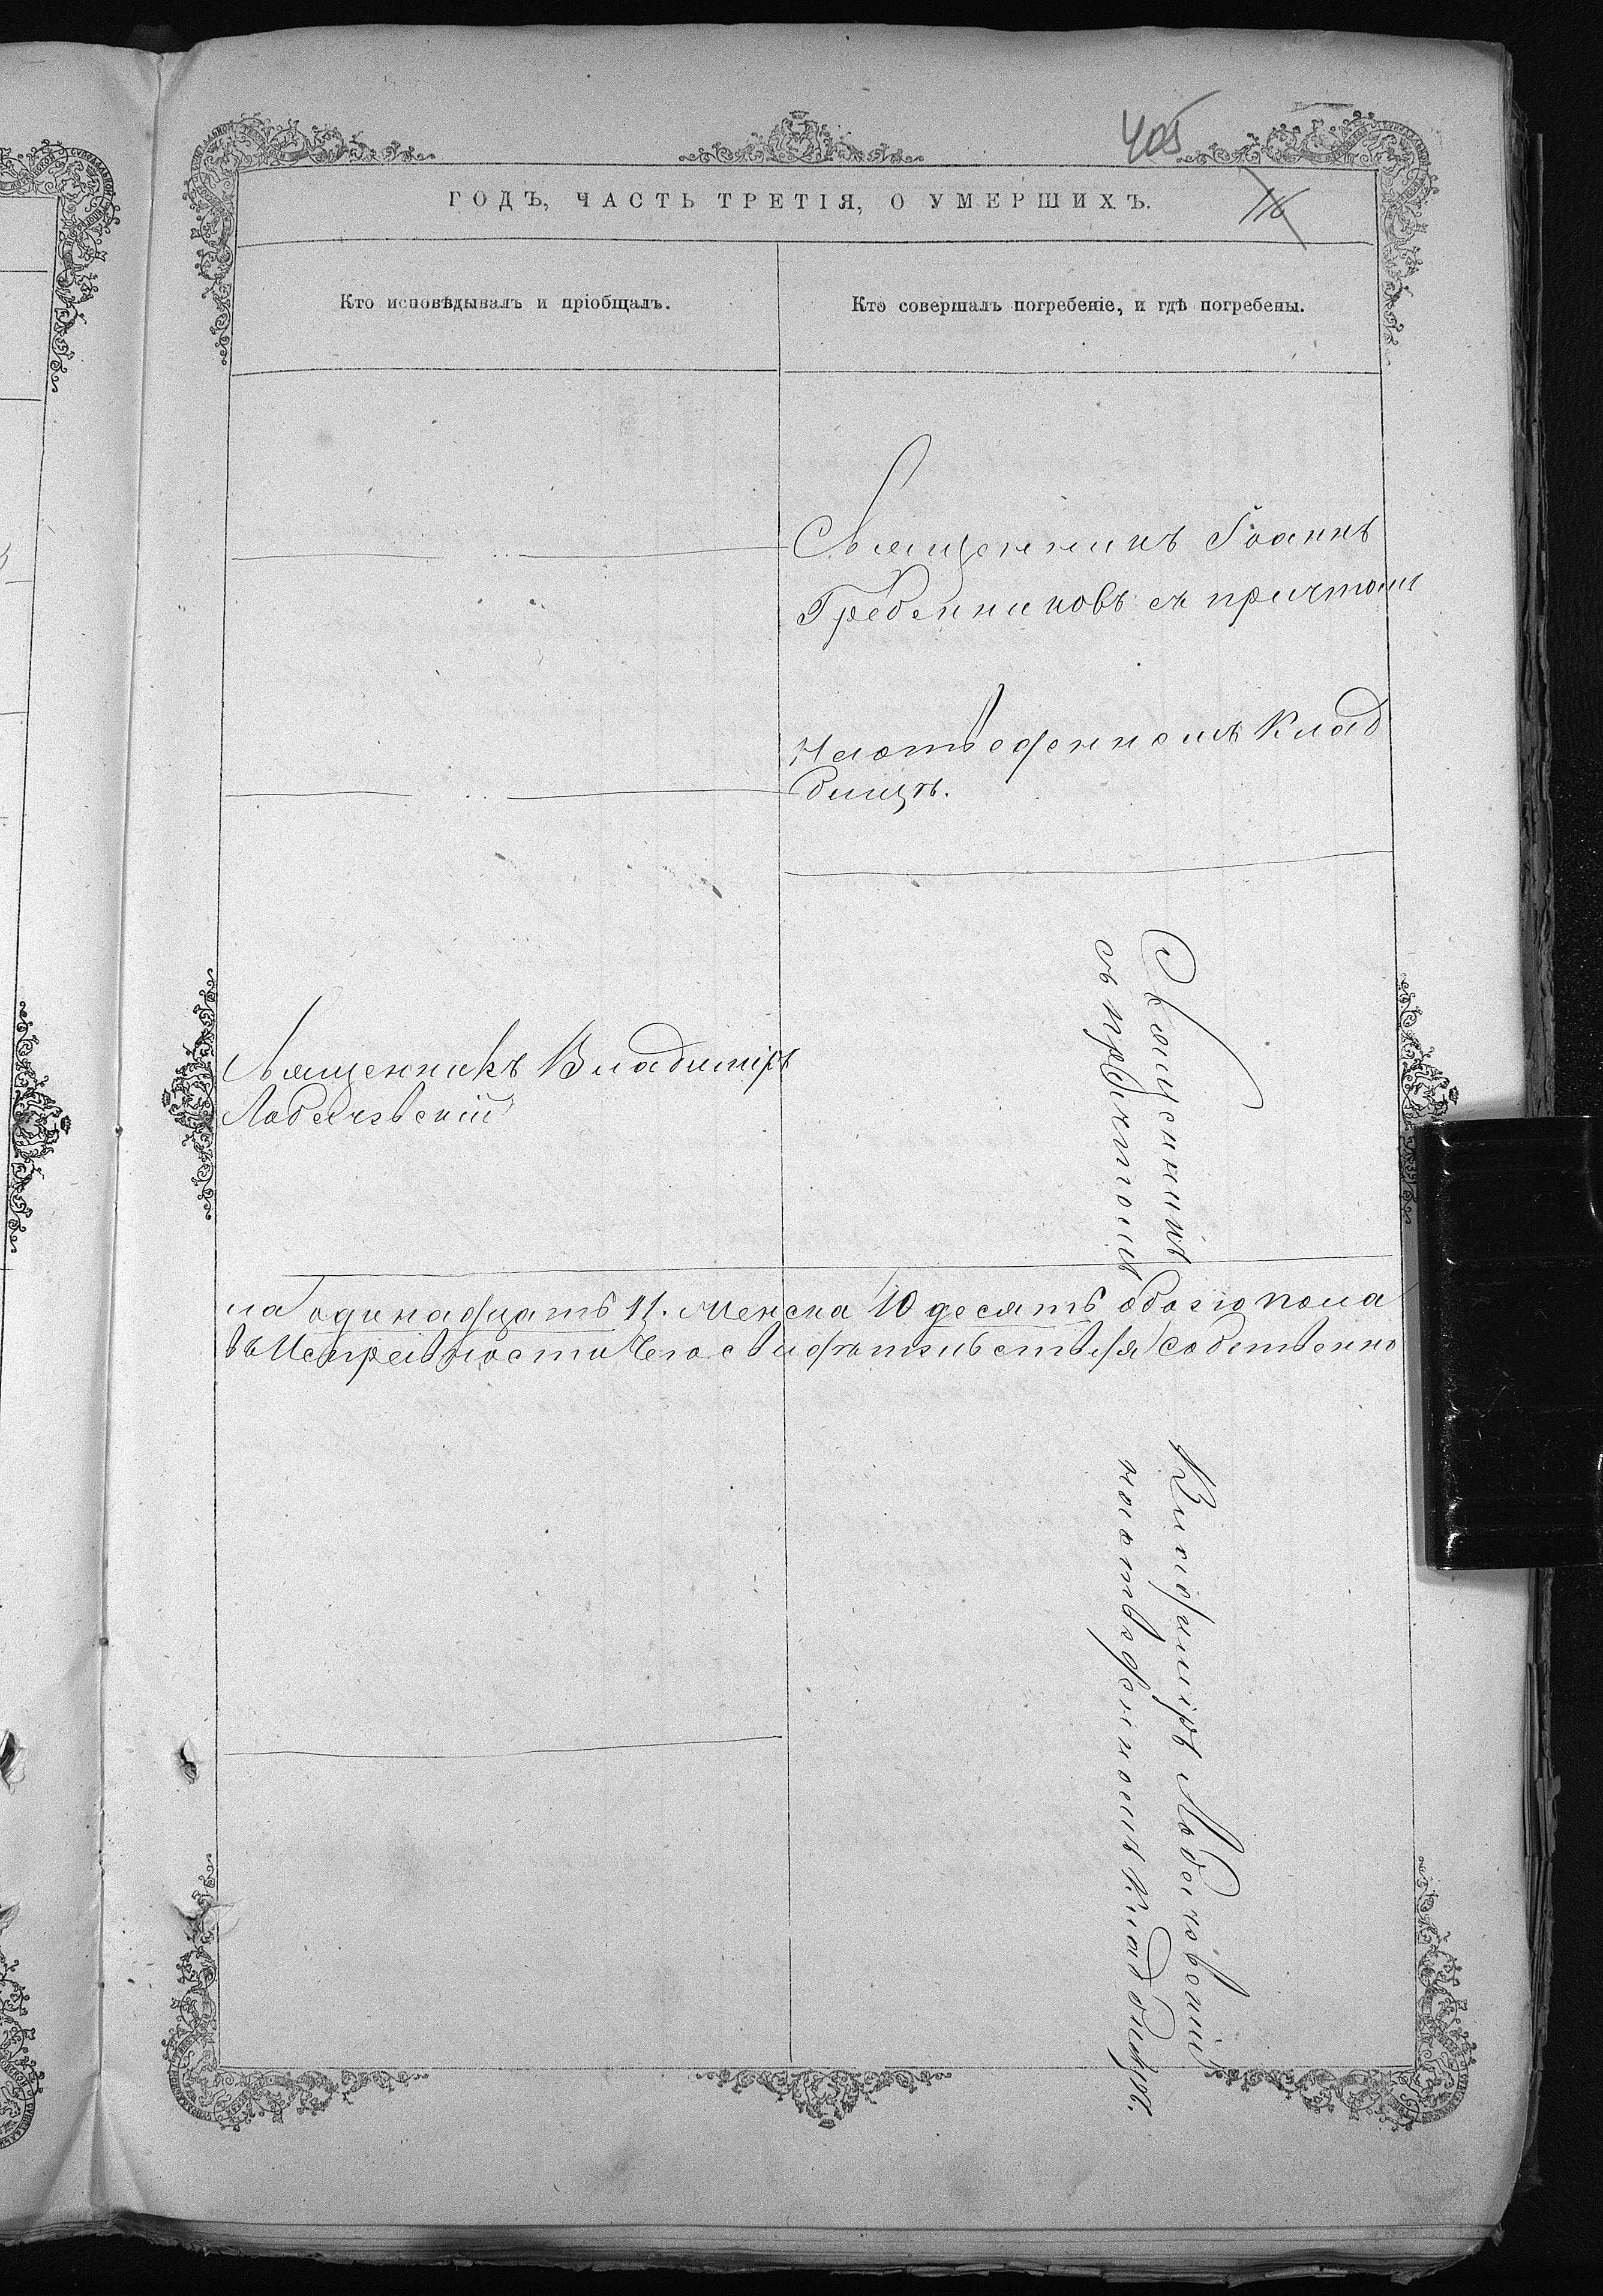 405
116
ГОДЪ, ЧАСТЬ ТРЕТІЯ, О УМЕРШИХЪ.
Кто исповѣдывалъ и пріобщалъ.
Кто совершалъ погребеніе, и гдѣ погребены.
Священникъ Іоаннъ
Гребенниковъ съ причтомъ
На отведенномъ Клад
бищѣ.
Священникъ Владиміръ
Лобачевскій
Священникъ Владиміръ Лобачевскій
съ причтомъ на отведенномъ Кладбищѣ.
ла одинадцать 11. Женска 10 десять обоего пола
въ Исправности Чего свидѣтельствуя собственно